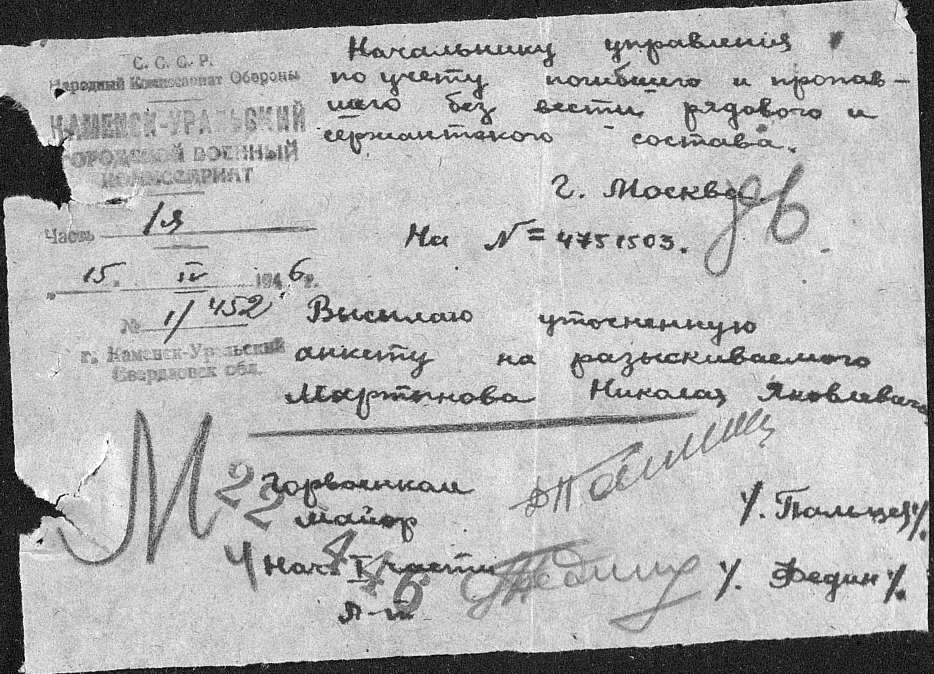 С. С. С. Р.
Народный Комиссариат Обороны
КАМЕНСК-УРАЛЬСКИЙ
ГОРОДСКОЙ ВОЕННЫЙ
КОМИССАРИАТ
Часть 1я
„ 15. IV 1946 г.
№ 1/452
г. Каменск-Уральский
Свердловск обл.
Начальнику управления
по учету погибшего и пропав-
шего без вести рядового и
сержантского состава.
г. Москва
На №= 4751503.
Высылаю уточненную
анкету на разыскиваемого
Мартынова Николая Яковлевича
М
22
Горвоенком
майор
/. Пальцев /.
Нач. I части
/. Федин /.